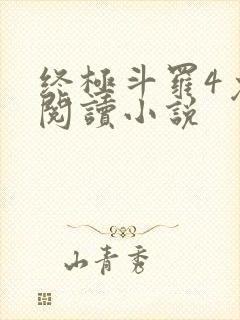 终極斗羅4
閱讀小説
山青秀